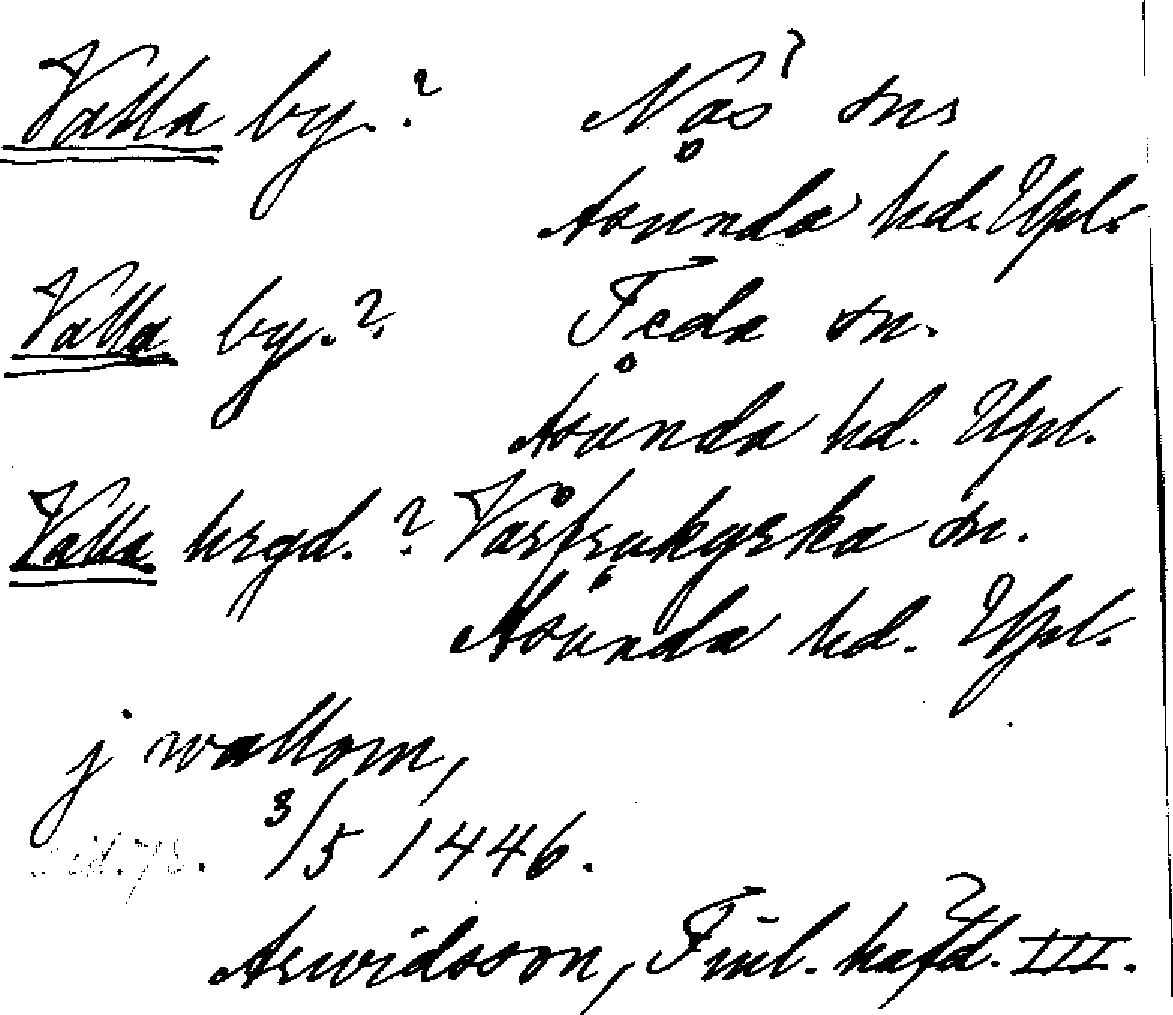 Valla by.? Näs sn
Åsunda hd. Upl.
Valla by.? Teda sn.
Åsunda hd. Upl.
Valla hrgd.? Vårfrukyrka sn.
Åsunda hd. Upl.
j wallom,
3/5 1446.
Arwidsson, Finl. häfd. III.